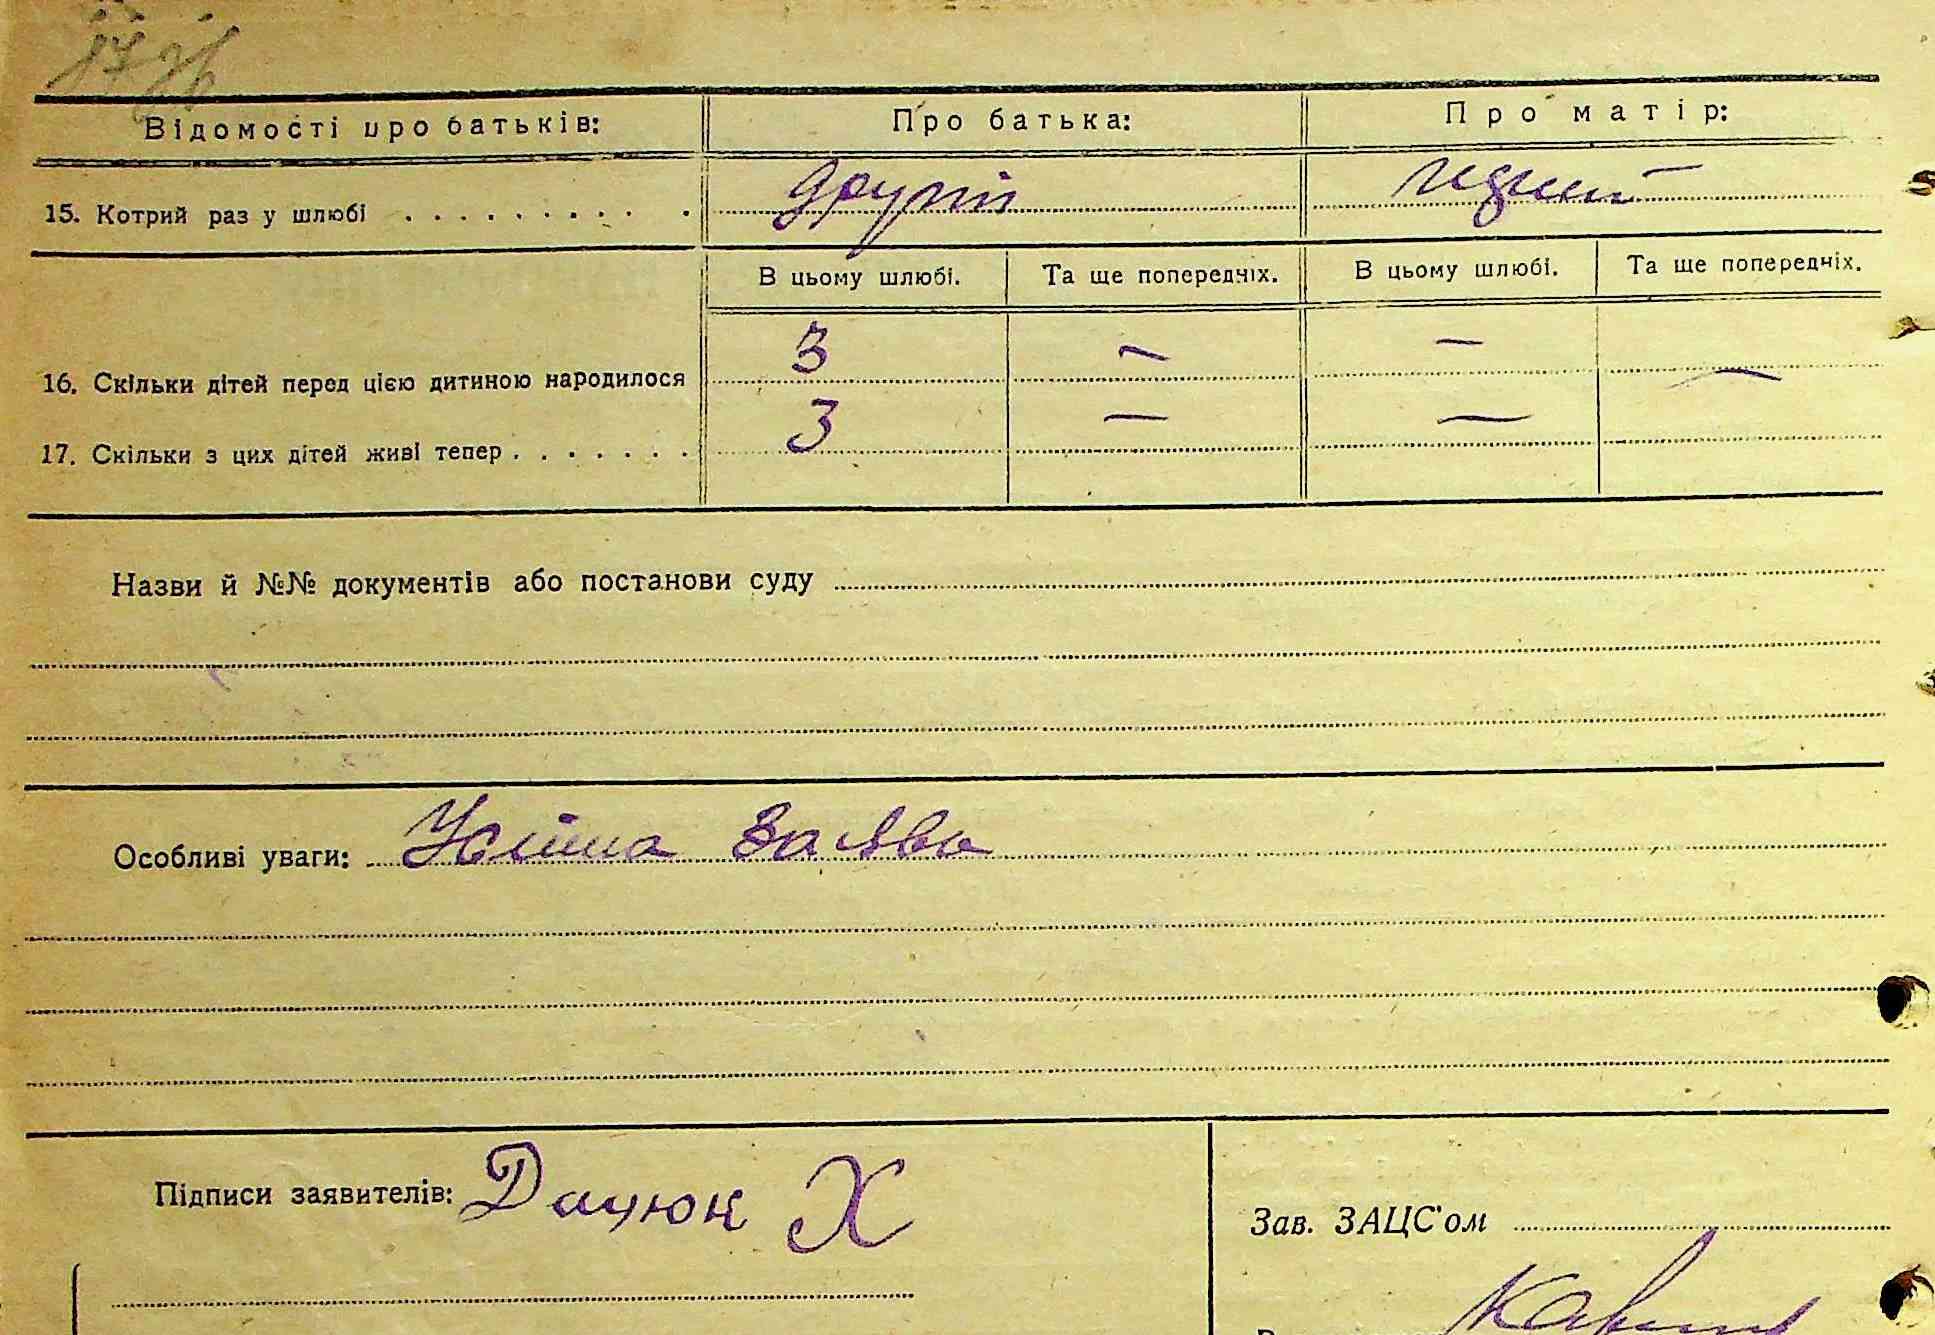 Відомості про батьків: Про батька: Про матір:
15. Котрий раз у шлюбі . . . . . . . . . . другий
В цьому шлюбі. Та ще попередніх. В цьому шлюбі. Та ще попередніх.
16. Скільки дітей перед цією дитиною народилося 3 — — —
17. Скільки з цих дітей живі тепер . . . . . . . 3 — —
Назви й №№ документів або постанови суду
Особливі уваги: Усіпна заява
Підписи заявителів: Дацюк Х
Зав. ЗАЦС'ом